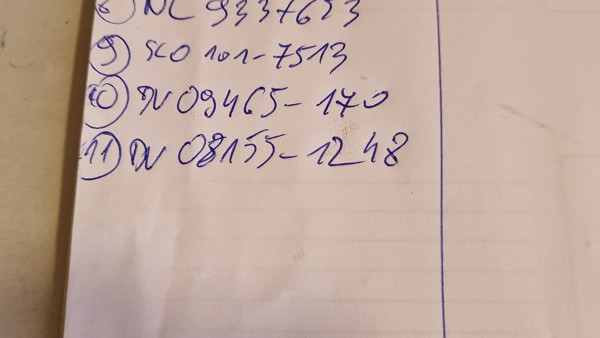 8 NL 9337653
9 SCO 101-7513
10 DN 09465-170
11 DN 08155-1248